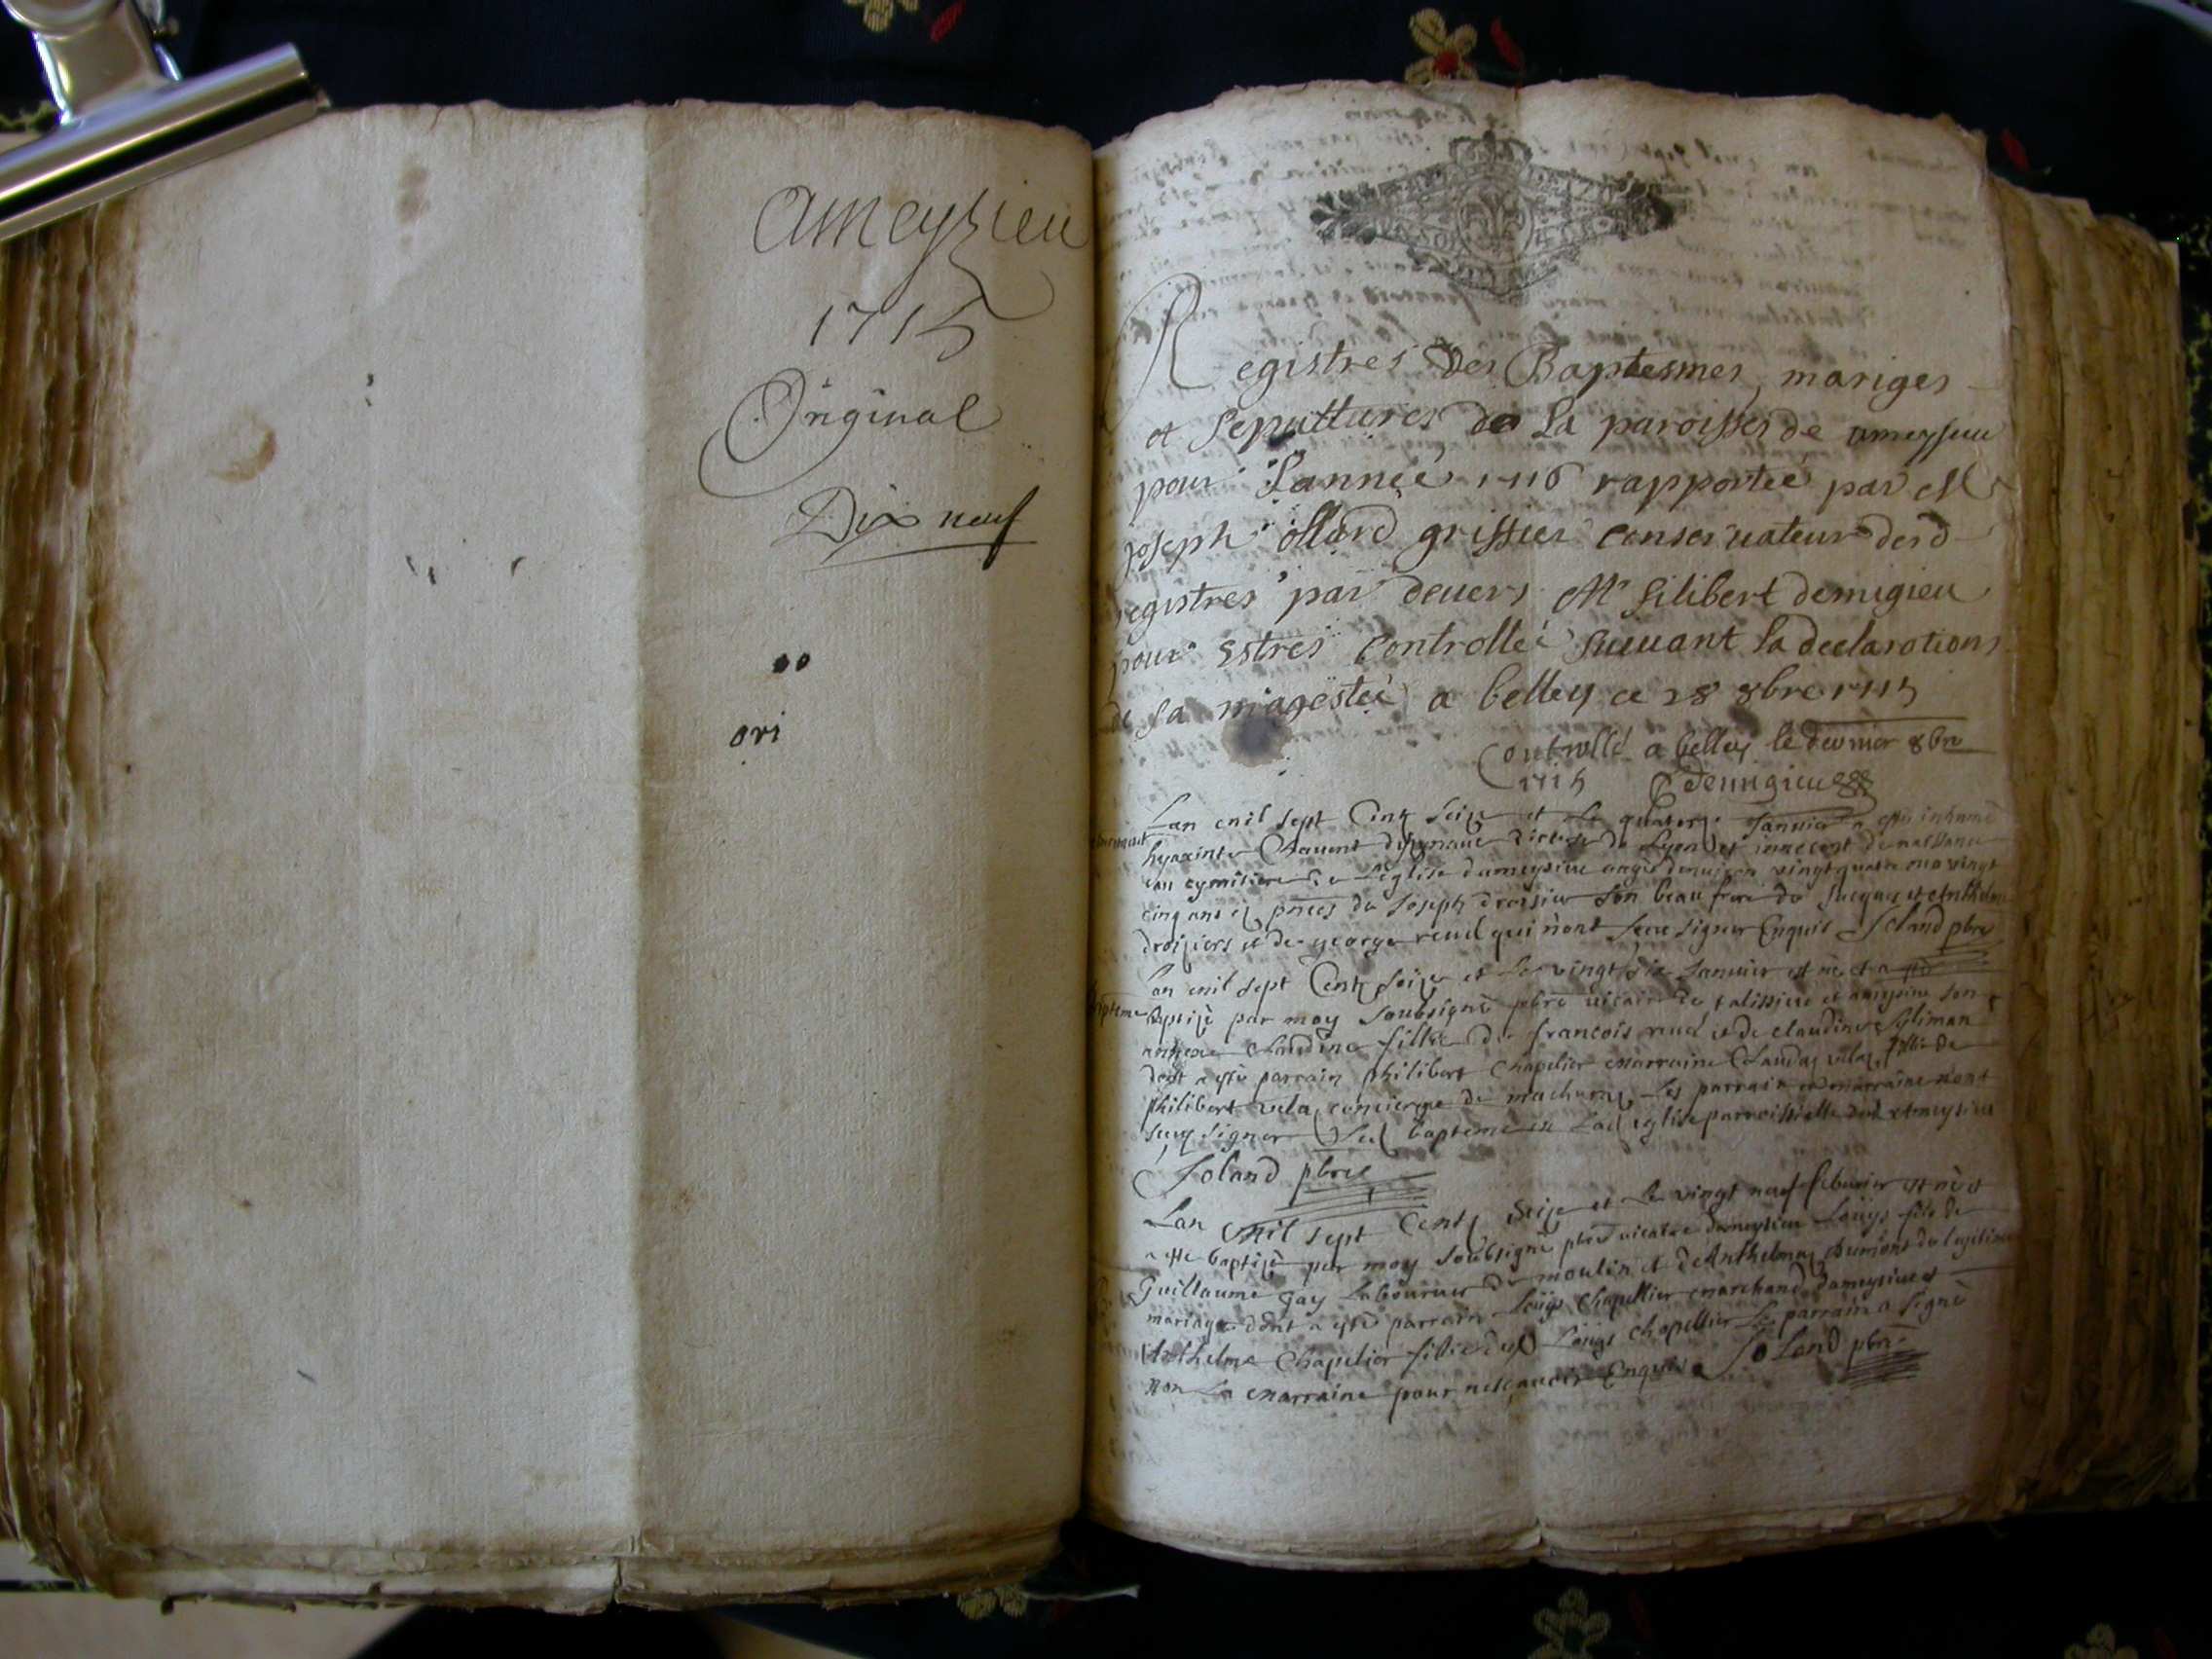 Ameyzieu
1715
Original
Dix neuf
ori
Registres des Baptesmes, mariges
et Sepulttures de La paroisses de ameysieu
pour L'année 1716 rapportée par Mr
joseph ollard griffier conseruateur desd
registres par deuers Mr filibert demigieu
pour Estres Controllée suiuant la declarations
de sa magestée a belley ce 28 8bre 1715
Controllé a belley le dernier 8bre
1715 Demigieu
Lan mil sept Cent Seize et Le quatorze Januier a esté inhumé
hyaxinte Chauent diocese de Lyon et innocent de naissance
au cymitiere de L'eglise dameysieu aagé denuiron vingt quatre ou vingt
cinq ans ez pnces de Joseph droisier son beau frere de Jacques et Anthelme
droiziers et de george reuel qui n'ont sceu signer Enquis Soland pbre
Lan mil sept Cent Seize et Le vingt six Januier est né et a été
Bapteme baptizé par moy soubsigné pbre uicaire de talissieu et ameysieu son
annexe Claudine fillie de francois reuel et de claudine Syliman
dont a esté parrain philibert Chapelier marraine Clauda uela fillie de
philibert uela concierge de machuraz Les parrain et marraine n'ont
sceu signer Led bapteme en Lad eglise parroissielle dud Ameysieu
Soland pbre
Lan Mil sept Cent Seize et Le vingt neuf feburier est né et
a esté baptizé par moy soubsigné pbre uicaire dameysieu Loüys fils de
Guillaume Gay Laboureur du moulin et de Anthelmaz dumont de legitime
mariage dont a esté parrain Loüys Chapellier marchand dameysieu et
Anthelme Chapelier fillie dud Loüys Chapellier Le parrain a signé
non La marraine pour ne scauoir Enquise Soland pbre